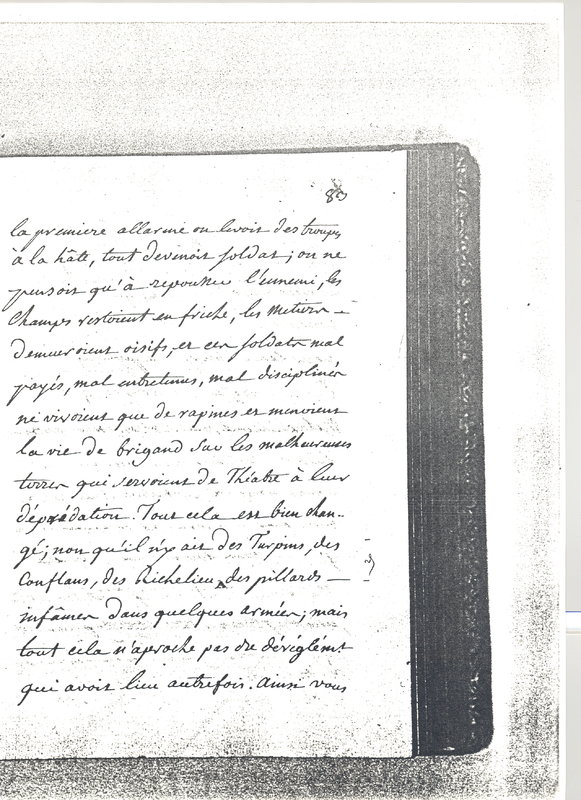 83
la premiere allarme on levoit des troupes
à la hâte, tout devenoit soldat; on ne
pensoit qu'à repousser l'ennemi, les
champs restoient en friche, les metiers
demeuroient oisifs, et ces soldats mal
payés, mal entretenus, mal disciplinés
ne vivoient que de rapines et menoient
la vie de brigand sur les malheureuses
terres qui servoient de Théatre à leur
déprédation. Tout cela est bien chan-
gé; non qu'il n'y ait des Turpins, des
Conflans, des Richelieu, des pillards
infâmes dans quelques armées; mais
tout cela n'aproche pas du déréglémt
qui avoit lieu autrefois. Ainsi vous